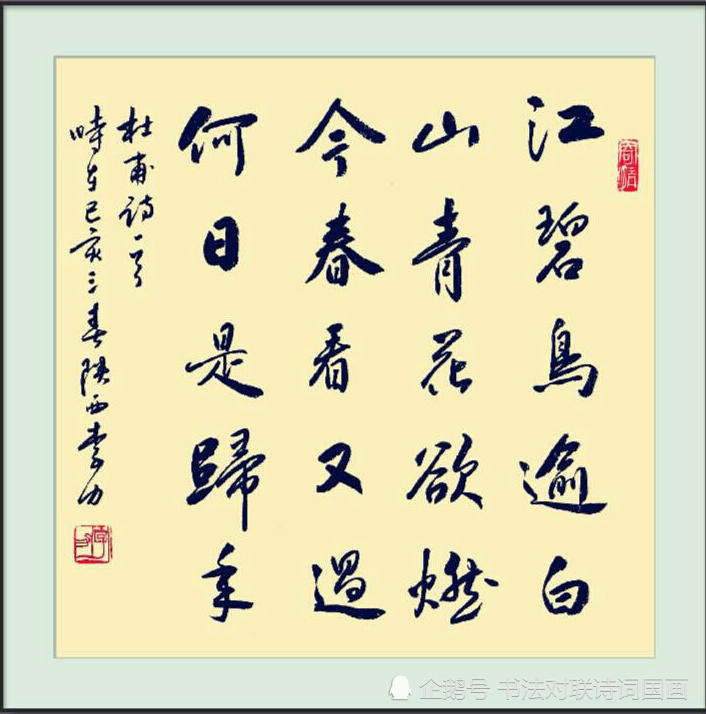 江碧鳥逾白
山青花欲燃
今春看又過
何日是歸年
杜甫诗一首
時在己亥三春陕西李功
寄情
企鹅号 书法对联诗词国画